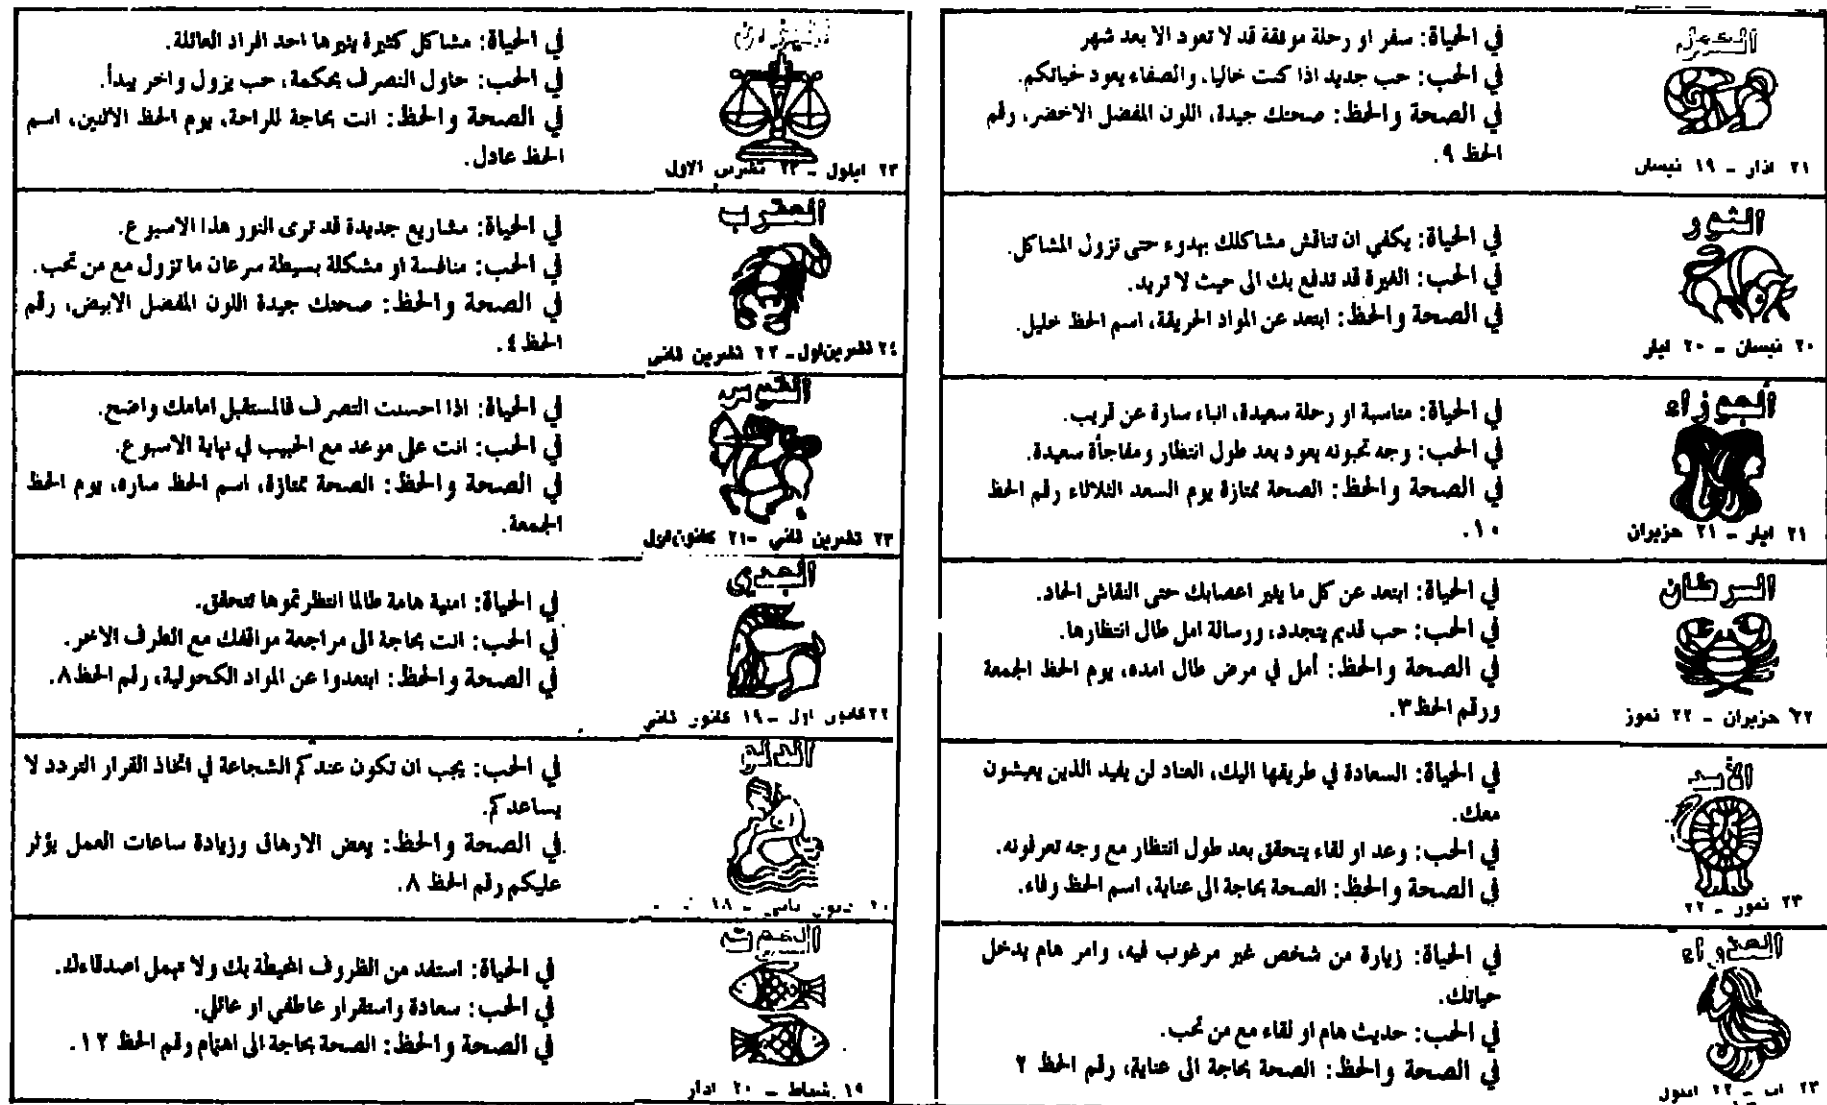 في الحياة: سفر او رحلة موفقة قد لا تعود الا بعد شهر
في الحب: حب جديد اذا كنت خاليا، والصفاء يعود لحياتكم.
في الصحة والحظ: صحتك جيدة، اللون المفضل الاخضر، رقم
الحظ ٩.
٢١ اذار - ١٩ نيسان
الثور
في الحياة: يكفي ان تناقش مشاكلك بهدوء حتى تزول المشاكل.
في الحب: الغيرة قد تدفع بك الى حيث لا تريد.
في الصحة والحظ: ابتعد عن المواد الحريقة، اسم الحظ خليل.
٢٠ نيسان - ٢٠ ايار
الجوزاء
في الحياة: مناسبة او رحلة سعيدة، انباء سارة عن قريب.
في الحب: وجه تحبونه يعود بعد طول انتظار ومفاجأة سعيدة.
في الصحة والحظ: الصحة ممتازة يوم السعد الثلاثاء رقم الحظ
١٠.
٢١ ايار - ٢١ حزيران
السرطان
في الحياة: ابتعد عن كل ما يثير اعصابك حتى النقاش الحاد.
في الحب: حب قديم يتجدد، ورسالة امل طال انتظارها.
في الصحة والحظ: أمل في مرض طال امده، يوم الحظ الجمعة
ورقم الحظ ٣.
٢٢ حزيران - ٢٢ تموز
الأسد
في الحياة: السعادة في طريقها اليك، العناد لن يفيد الذين يعيشون
معك.
في الحب: وعد او لقاء يتحقق بعد طول انتظار مع وجه تعرفونه.
في الصحة والحظ: الصحة بحاجة الى عناية، اسم الحظ وفاء.
٢٣ تموز - ٢٢
العذراء
في الحياة: زيارة من شخص غير مرغوب فيه، وامر هام يدخل
حياتك.
في الحب: حديث هام او لقاء مع من تحب.
في الصحة والحظ: الصحة بحاجة الى عناية، رقم الحظ ٢
٢٣ اب - ٢٢ ايلول
في الحياة: مشاكل كثيرة يثيرها احد افراد العائلة.
في الحب: حاول التصرف بحكمة، حب يزول واخر يبدأ.
في الصحة والحظ: انت بحاجة للراحة، يوم الحظ الاثنين، اسم
الحظ عادل.
٢٣ ايلول - ٢٣ تشرين الاول
العقرب
في الحياة: مشاريع جديدة قد ترى النور هذا الاسبوع.
في الحب: منافسة او مشكلة بسيطة سرعان ما تزول مع من تحب.
في الصحة والحظ: صحتك جيدة اللون المفضل الابيض، رقم
الحظ ٤.
٢٤ تشرين اول - ٢٢ تشرين ثاني
القوس
في الحياة: اذا احسنت التصرف فالمستقبل امامك واضح.
في الحب: انت على موعد مع الحبيب في نهاية الاسبوع.
في الصحة والحظ: الصحة ممتازة، اسم الحظ ساره، يوم الحظ
الجمعة.
٢٣ تشرين ثاني - ٢١ كانون اول
الجدي
في الحياة: امنية هامة طالما انتظرتموها تتحقق.
في الحب: انت بحاجة الى مراجعة مواقفك مع الطرف الاخر.
في الصحة والحظ: ابتعدوا عن المواد الكحولية، رقم الحظ ٨.
٢٢ كانون اول - ١٩ كانون ثاني
الدلو
في الحب: يجب ان تكون عندكم الشجاعة في اتخاذ القرار التردد لا
يساعدكم.
في الصحة والحظ: بعض الارهاق وزيادة ساعات العمل يؤثر
عليكم رقم الحظ ٨.
٢٠ كانون ثاني - ١٨
الحوت
في الحياة: استفد من الظروف المحيطة بك ولا تهمل اصدقاءك.
في الحب: سعادة واستقرار عاطفي او عائلي.
في الصحة والحظ: الصحة بحاجة الى اهتمام رقم الحظ ١٢.
١٩ شباط - ٢٠ اذار